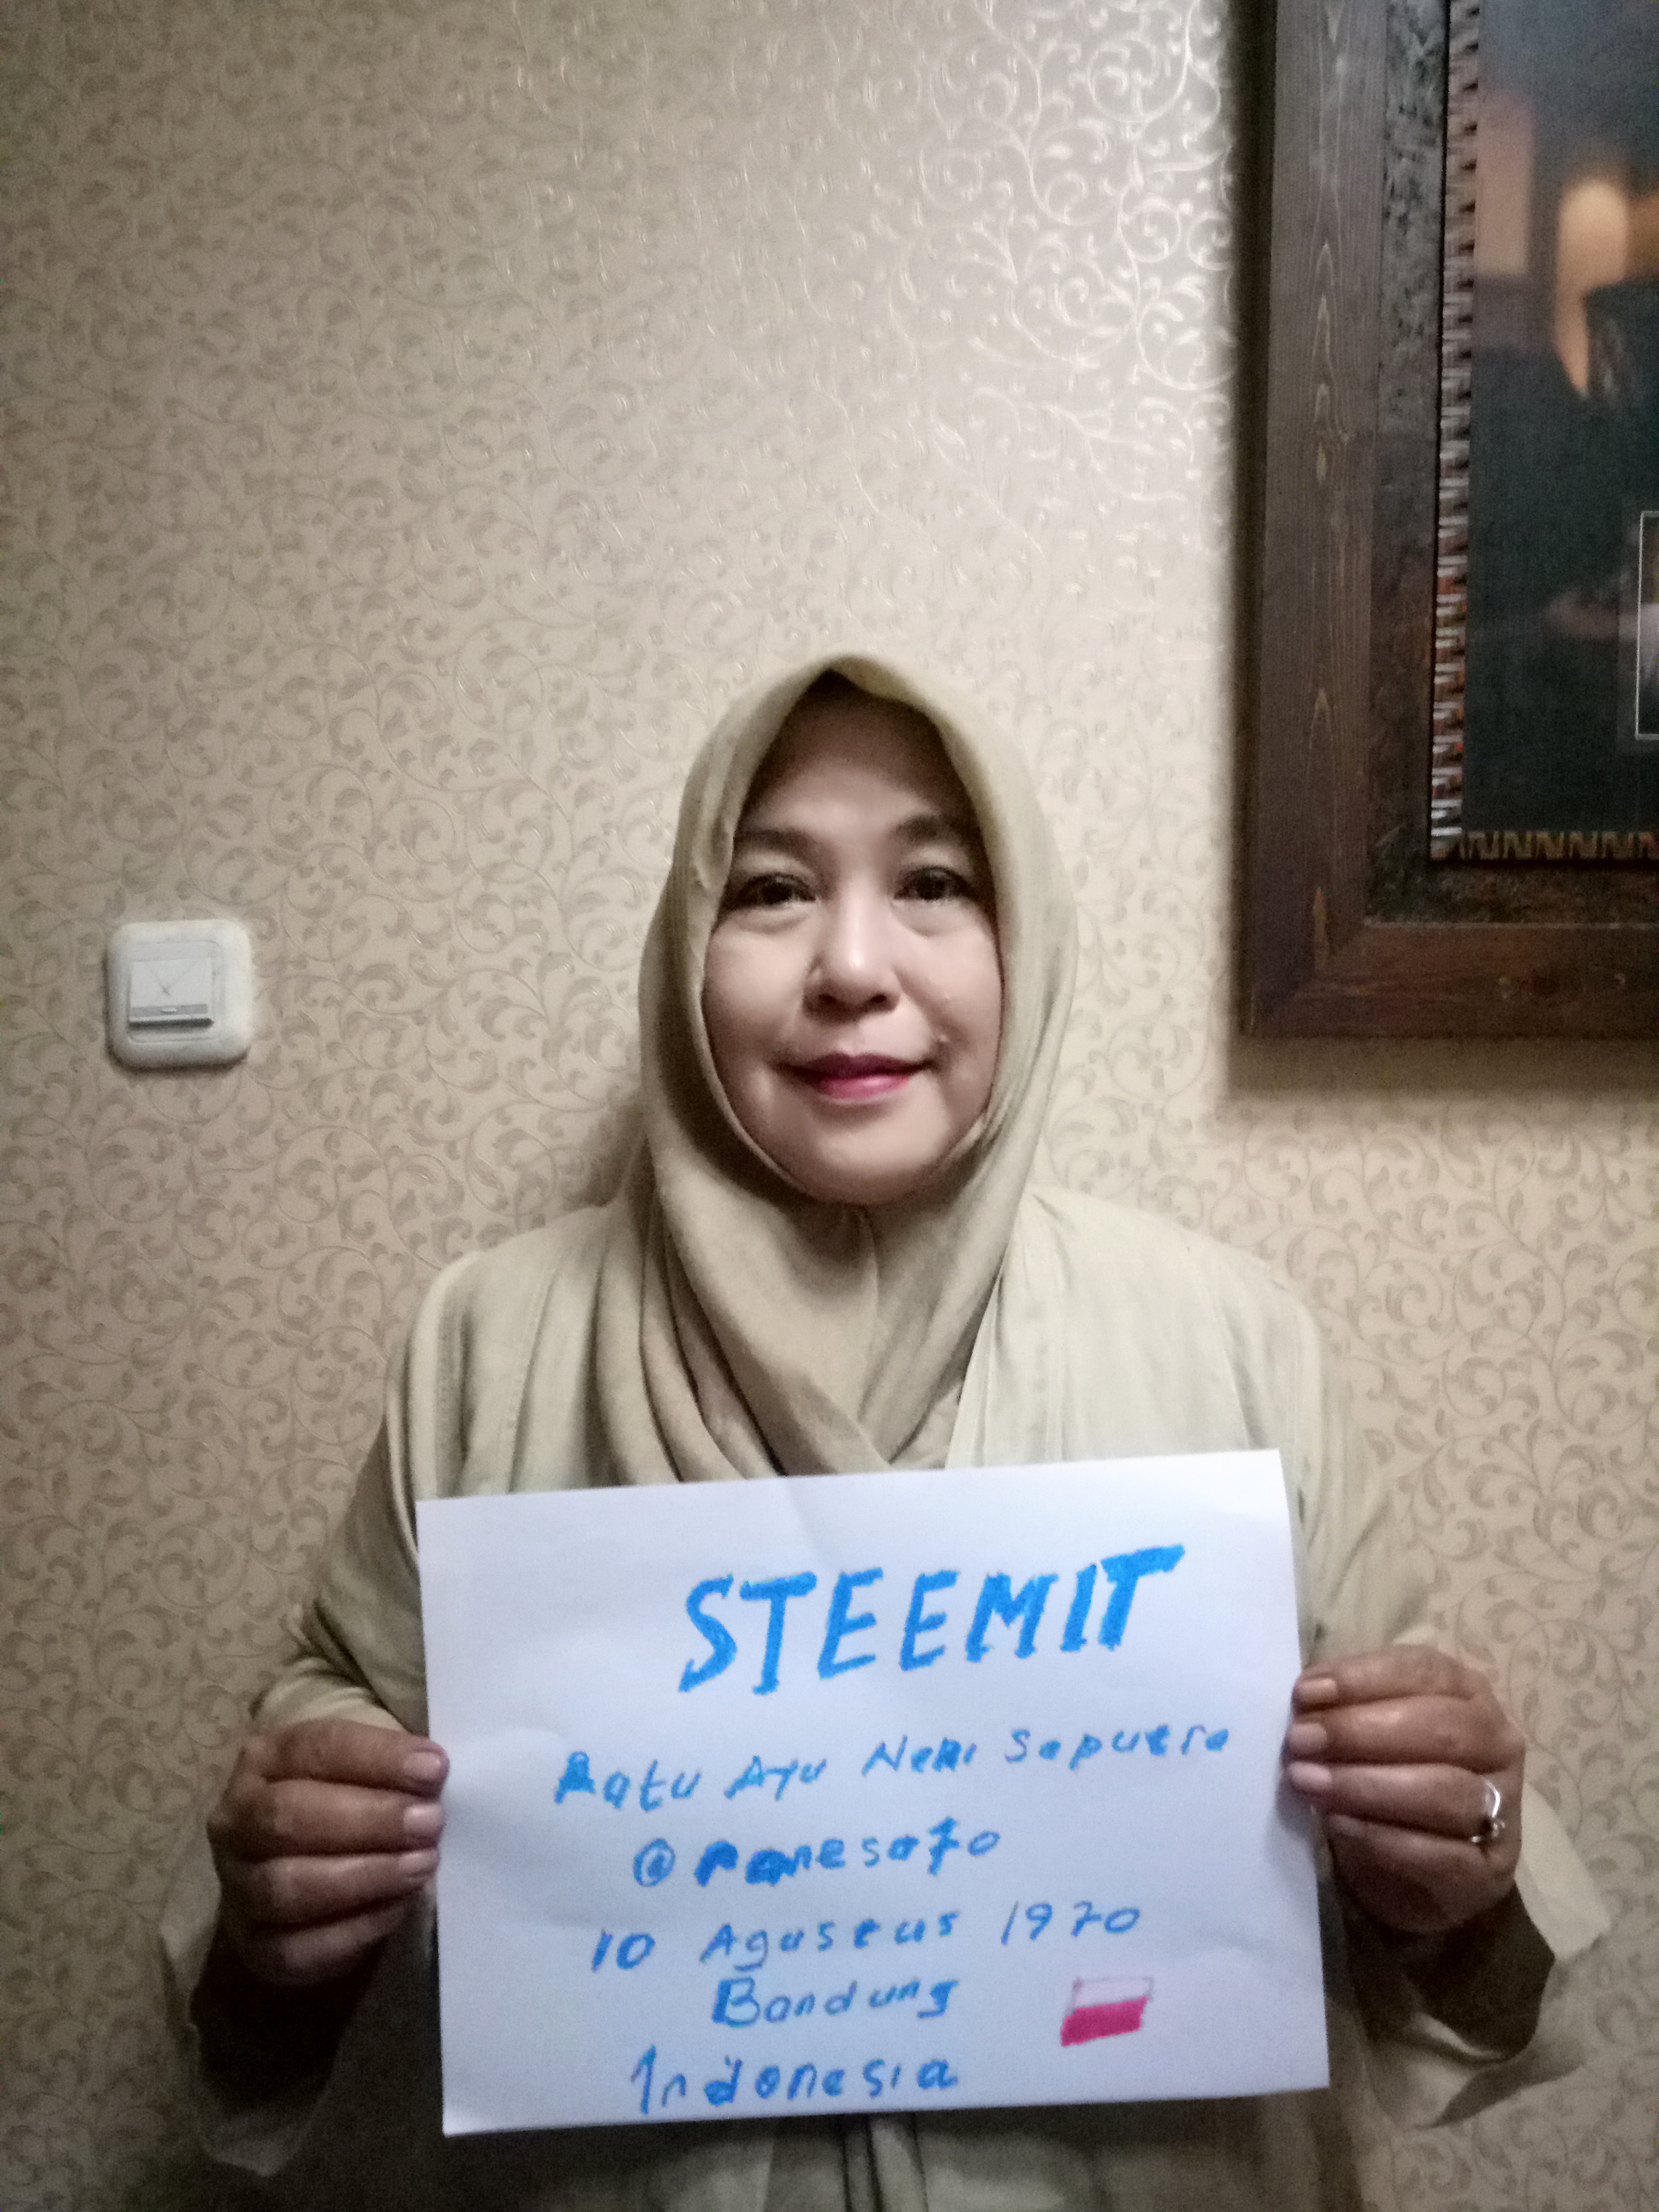 STEEMIT
Ratu Ayu Neni Saputra
@ranesa70
10 Agustus 1970
Bandung
Indonesia